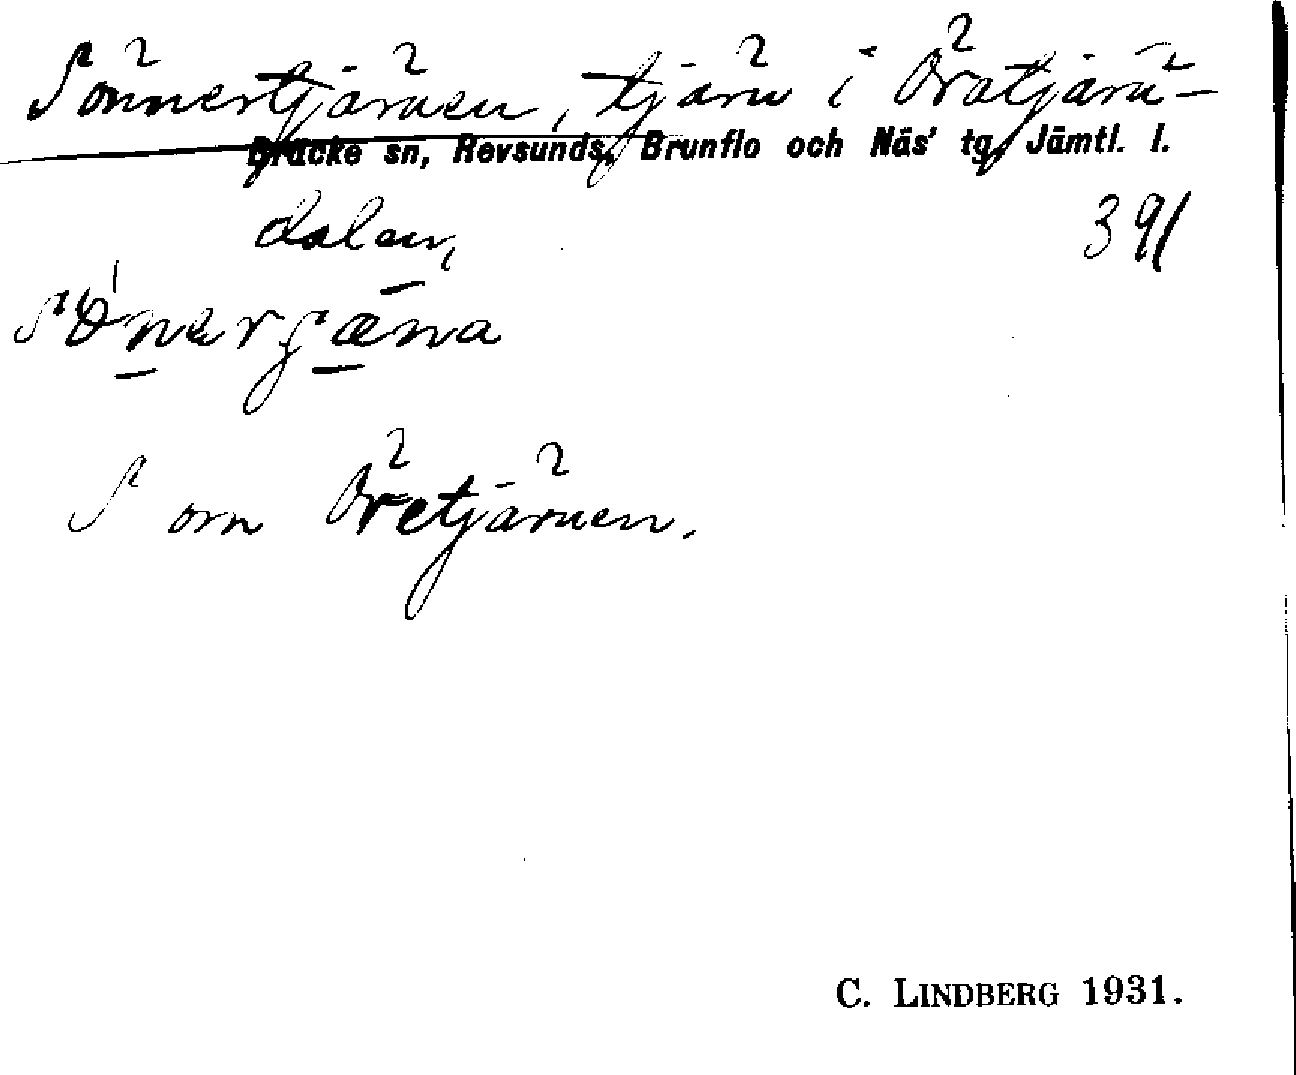 Sönnertjärnen, tjärn i Öratjärn-
Bräcke sn, Revsunds, Brunflo och Näs' tg, Jämtl. l.
dalen,
391
S om Öretjärnen.
C. LINDBERG 1931.